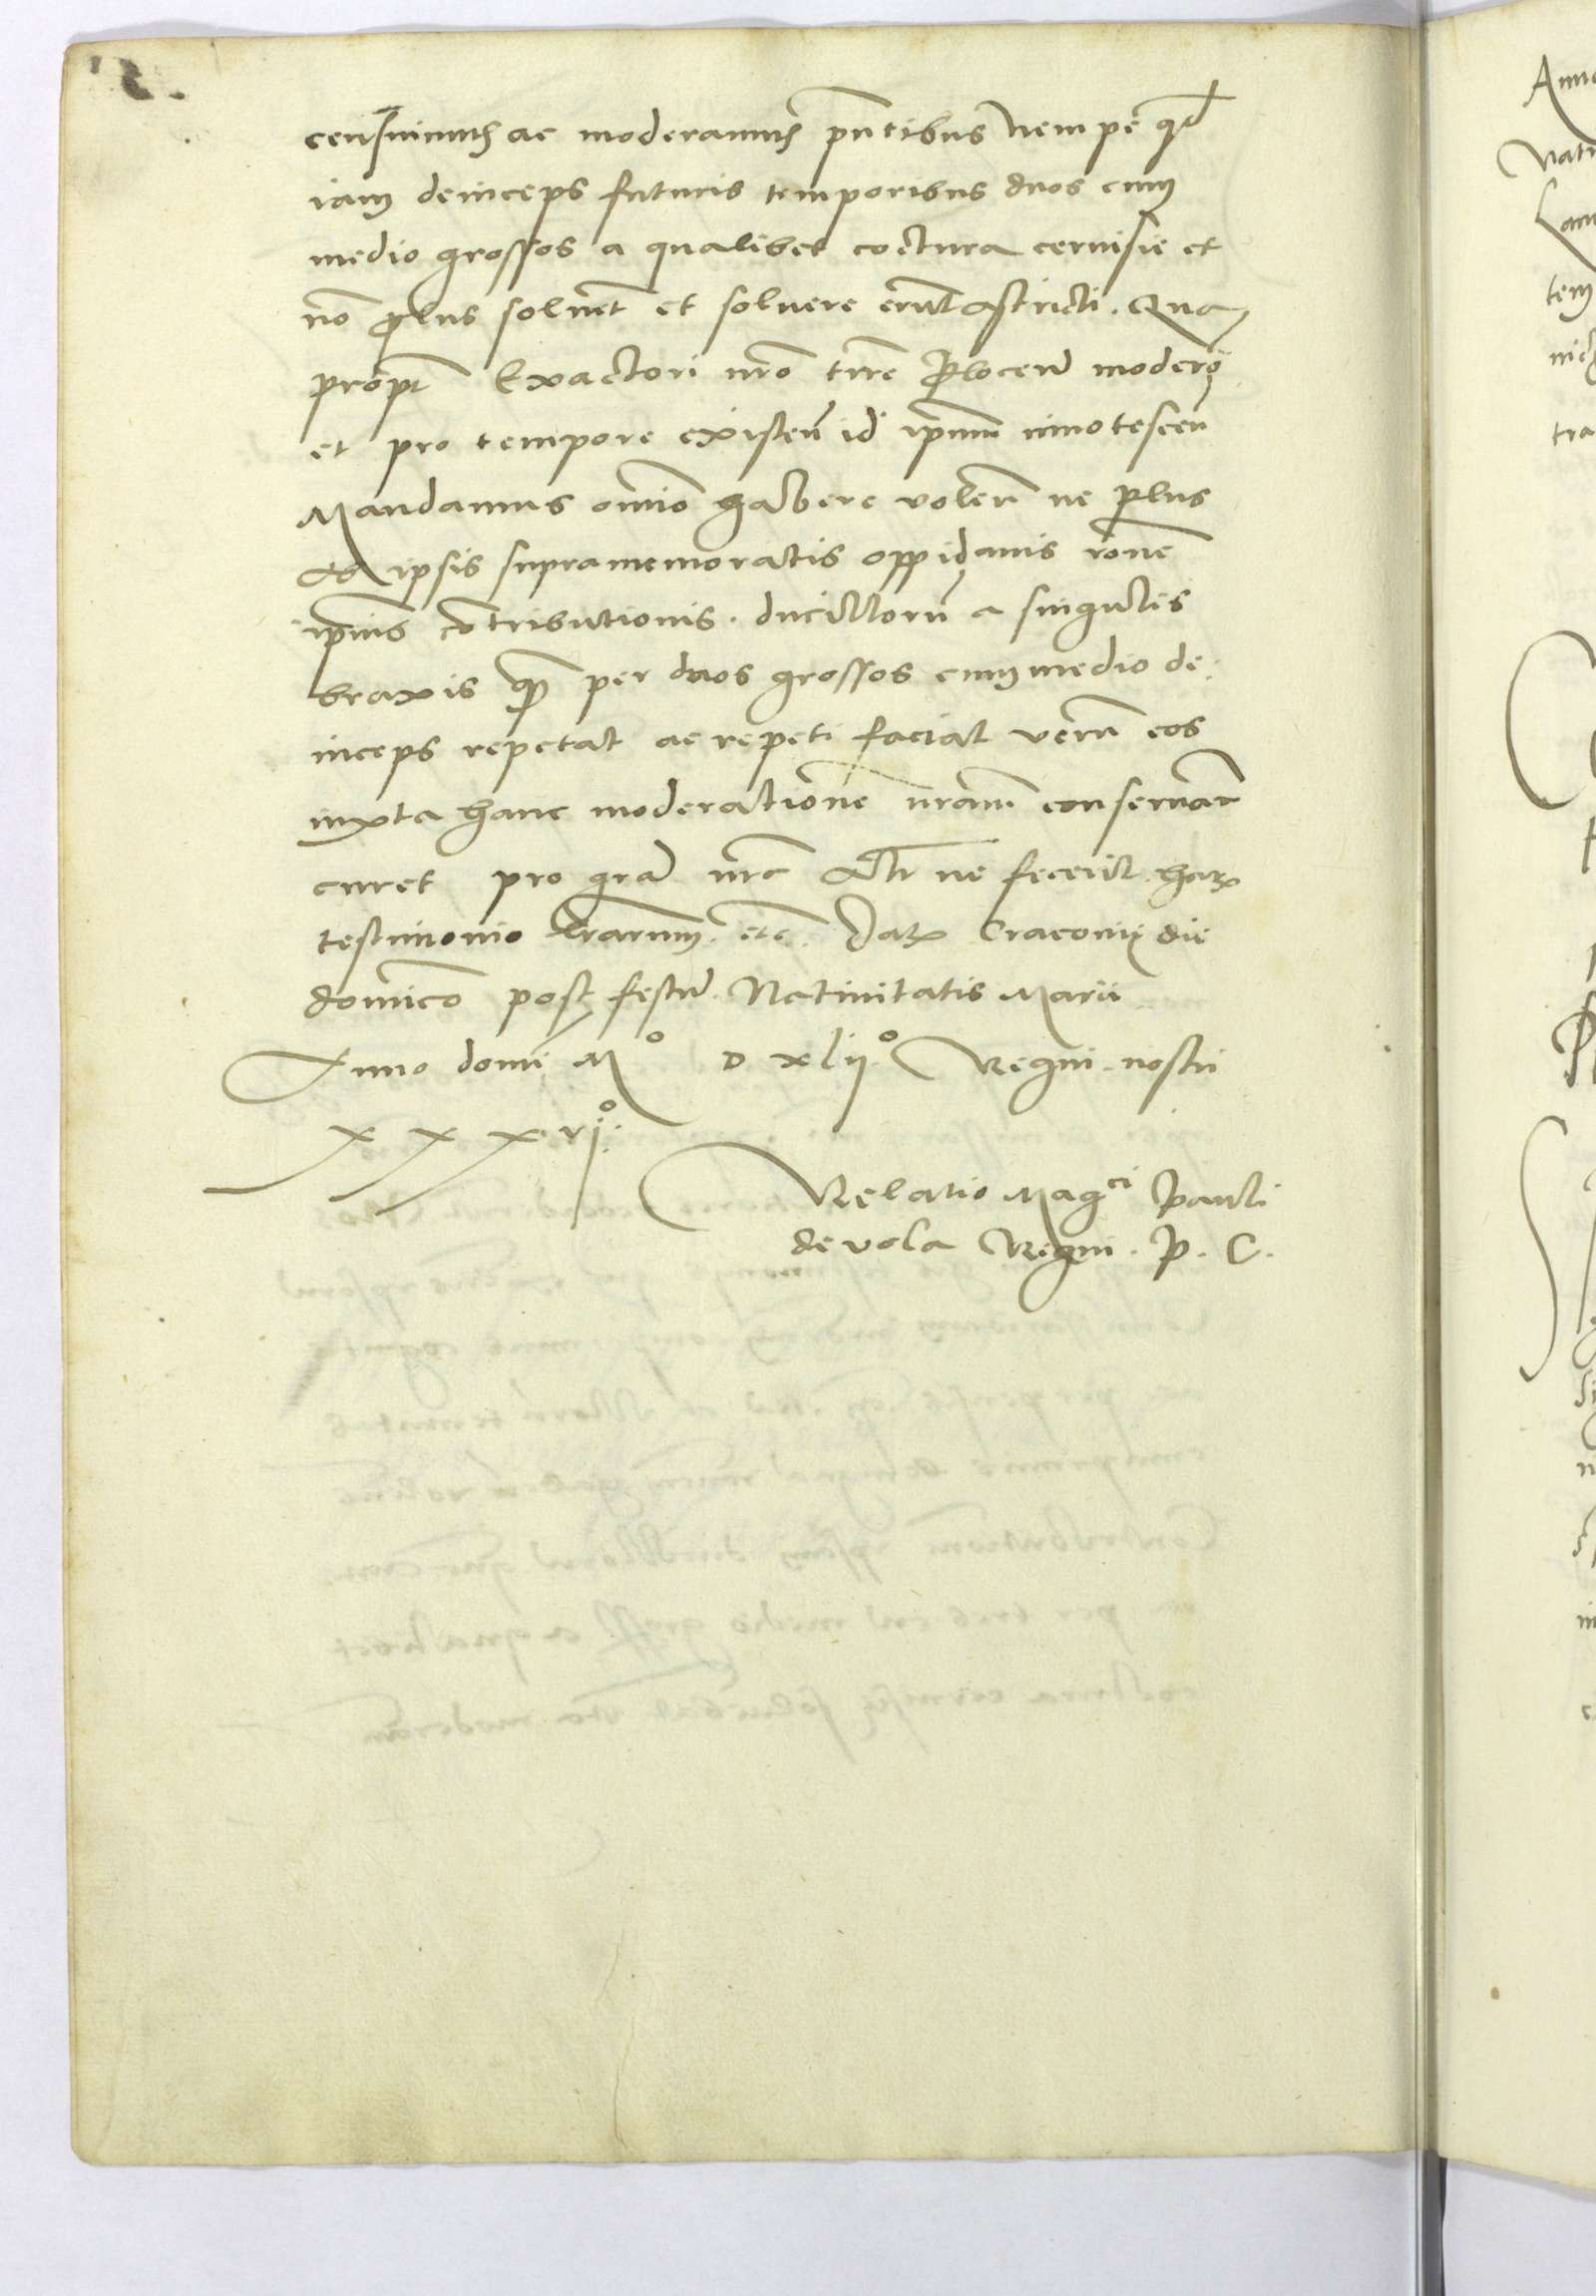 censuimus ac moderamus pntibus Nempe qd
iam deinceps futuris temporibus duos cum
medio grossos a qualibet coctura ceruisie et
no plus soluet et soluere erut astricti. Qua
propt Exactori nro trre Plocen modero
et pro tempore existen id ipmum innotescen
Mandamus omnio habere volen ne plus
ab ipsis supramemoratis oppidanis rone
ipius cotributionis. ducilloru a singulis
braxis qz per duos grossos cum medio de:
inceps repetat ac repeti faciat veru eos
iuxta hanc moderatione nram conseruare
curet pro gra nra Alr ne fecerit harz
testimonio lrarum. etc. Datz Cracouie die
dominico post festu Natiuitatis Marie
Anno domi Mo D xlijo Regni nostri
xxxvjo.
Relatio Magci Pauli
de vola Regni. P. C.